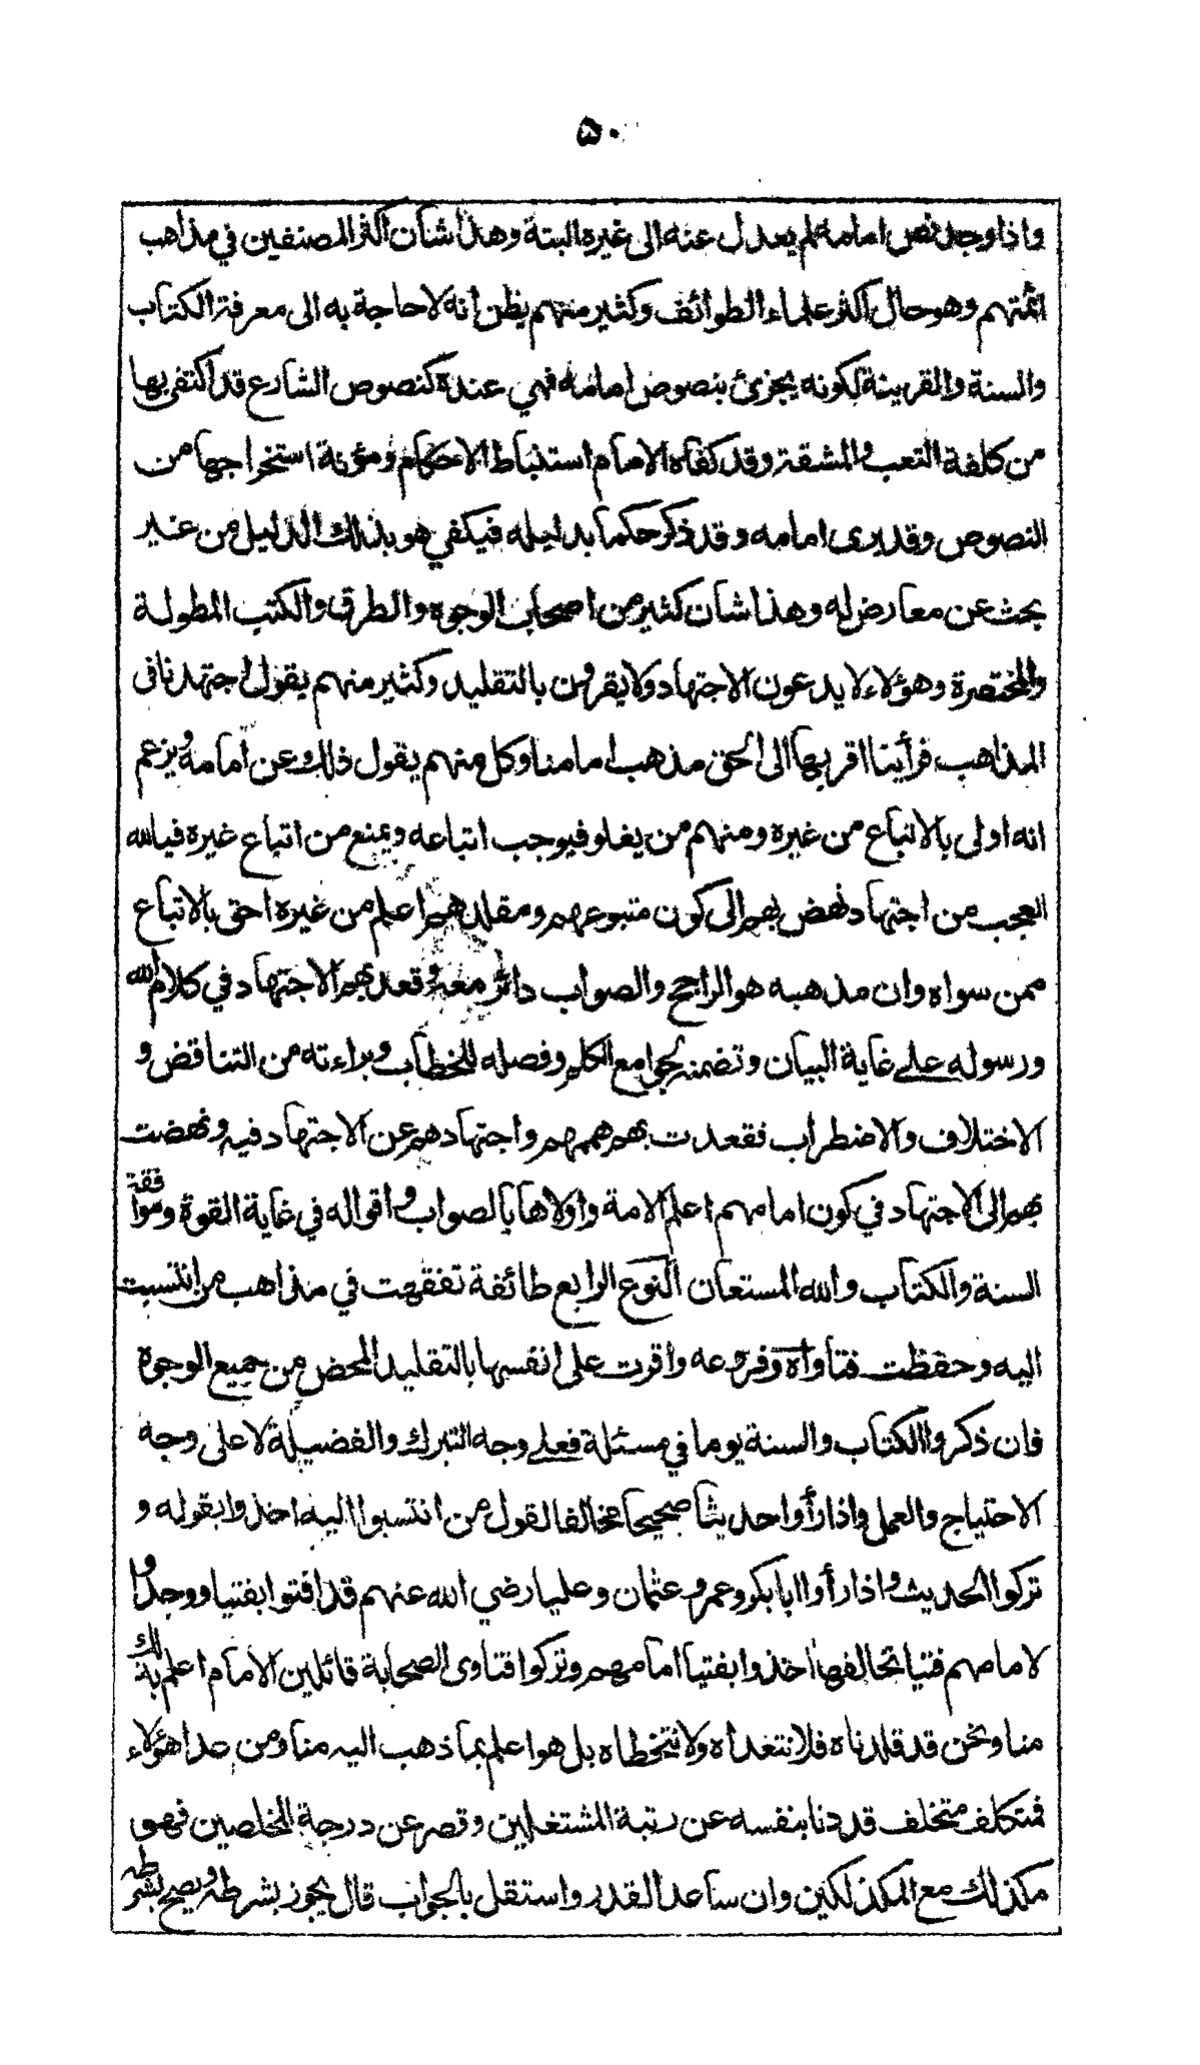 ٥٠
واذا وجد نص امامه لم يعدل عنه الى غيره البتة وهذا شان اكثر المصنفين في مذاهب
ائمتهم وهو حال اكثر علماء الطوائف وكثير منهم يظن انه لا حاجة به الى معرفة الكتاب
والسنة والقرينة لكونه يجزئ بنصوص امامه فهي عنده كنصوص الشارع قد اكتفى بها
من كلفة التعب والمشقة وقد كفاه الامام استنباط الاحكام ومؤنة استخراجها من
النصوص وقد يرى امامه وقد ذكر حكما بدليله فيكفي هو بذلك الدليل من غير
بحث عن معارض له وهذا شان كثير من اصحاب الوجوه والطرق والكتب المطولة
والمختصرة وهؤلاء لا يدعون الاجتهاد ولا يقرون بالتقليد وكثير منهم يقول اجتهدنا في
المذاهب فرأينا اقربها الى الحق مذهب امامنا وكل منهم يقول ذلك عن امامه ويزعم
انه اولى بالاتباع من غيره ومنهم من يغلو فيوجب اتباعه ويمنع من اتباع غيره فيالله
العجب من اجتهاد نهض بهم الى كون متبوعهم ومقلدهم اعلم من غيره احق بالاتباع
ممن سواه وان مذهبه هو الراجح والصواب دائر معه وقعد بهم الاجتهاد في كلام الله
ورسوله على غاية البيان وتضمنه لجوامع الكلم وفصله للخطاب وبراءته من التناقض و
الاختلاف والاضطراب فقعدت بهم هممهم واجتهادهم عن الاجتهاد فيه ونهضت
بهم الى الاجتهاد في كون امامهم اعلم الامة واولاها بالصواب واقواله في غاية القوة وموافقة
السنة والكتاب والله المستعان النوع الرابع طائفة تفقهت في مذاهب من انتسبت
اليه وحفظت فتاواه وفروعه واقرت على انفسها بالتقليد المحض من جميع الوجوه
فان ذكروا الكتاب والسنة يوما في مسئلة فعلى وجه التبرك والفضيلة لا على وجه
الاحتياج والعمل واذا رأوا حديثا صحيحا مخالفا لقول من انتسبوا اليه اخذوا بقوله و
تركوا الحديث واذا رأوا ابا بكر وعمر وعثمان وعليا رضي الله عنهم قد افتوا بفتيا ووجدوا
لامامهم فتيا تخالفها اخذوا بفتيا امامهم وتركوا فتاوى الصحابة قائلين الامام اعلم بذلك
منا ونحن قد قلدناه فلا نتعداه ولا نتخطاه بل هو اعلم بما ذهب اليه منا ومن عدا هؤلاء
فمتكلف متخلف قد دنا بنفسه عن رتبة المشتغلين وقصر عن درجة المخلصين فهو
مكذلك مع المكذلكين وان ساعد القدر واستقل بالجواب قال يجوز بشرطه ويصح بشرطه